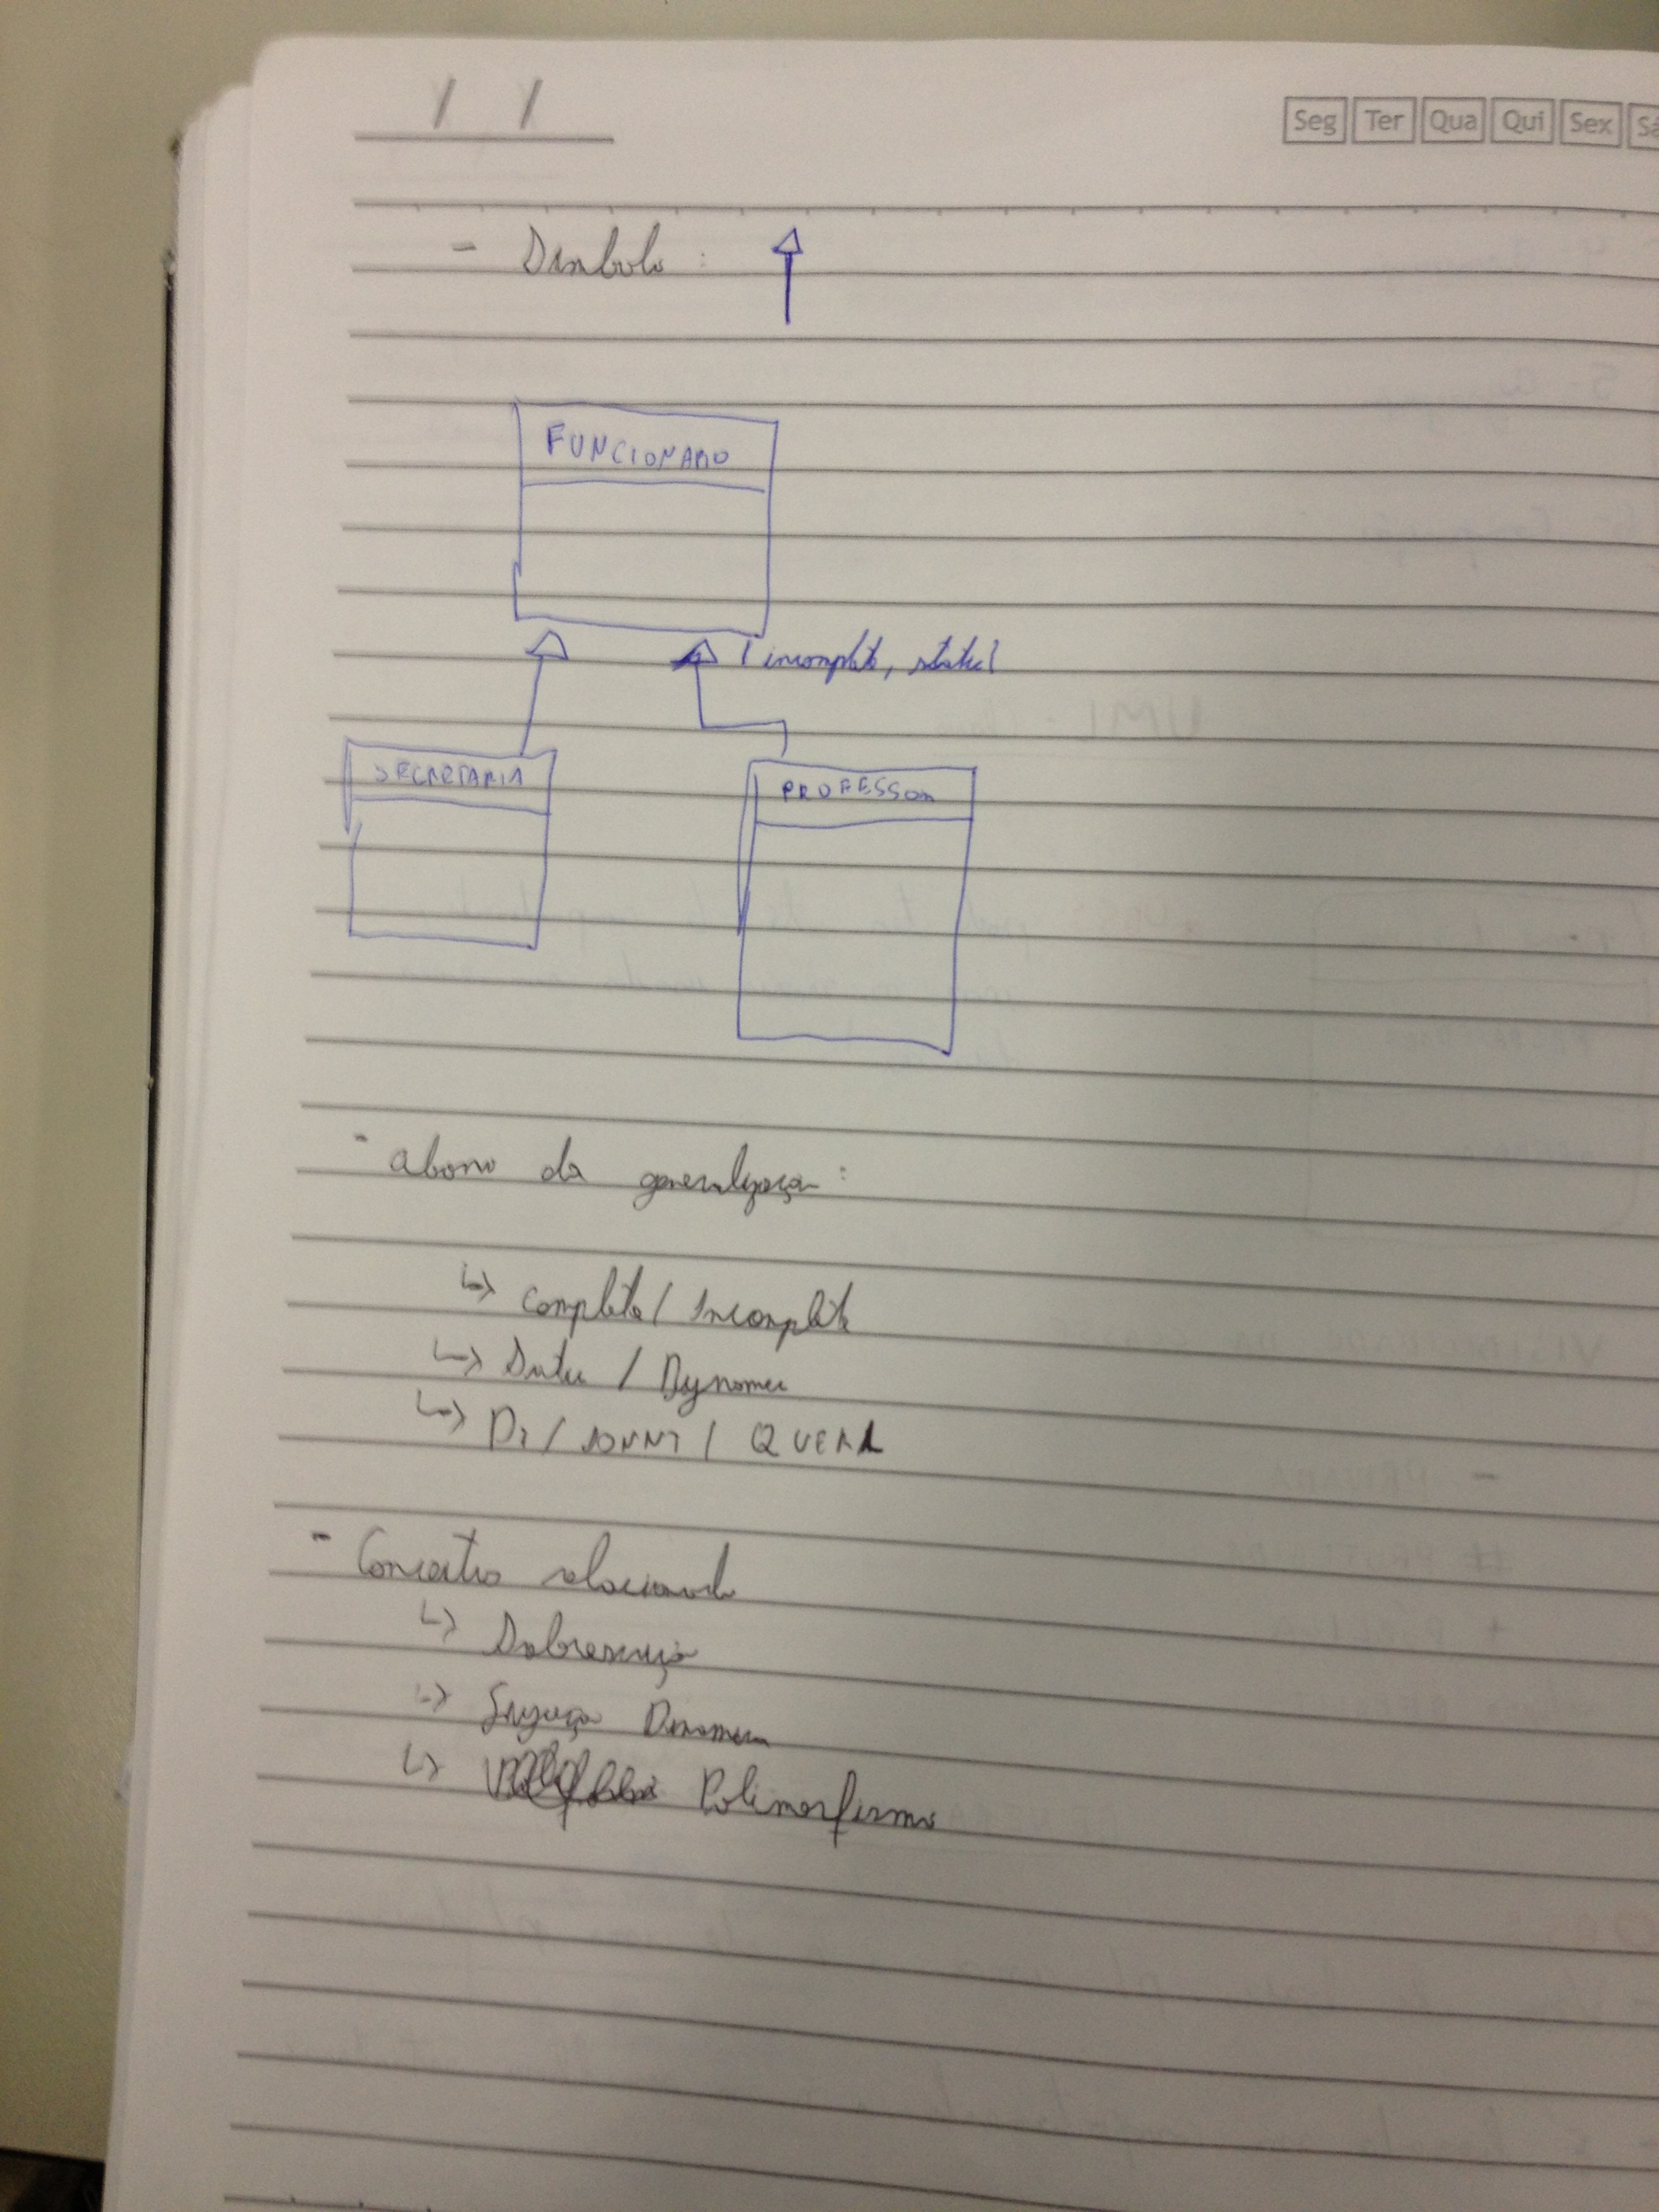 / /
Seg Ter Qua Qui Sex Sá
- Símbolo :
FUNCIONARIO
{ incomplete, static }
SECRETARIA
PROFESSOR
- da generalização :
↳ Complete / Incomplete
↳ Static / Dynamic
↳ / /
- Conceitos relacionados
↳ Sobrescrição
↳ Ligação Dinamica
↳ Polimorfismo